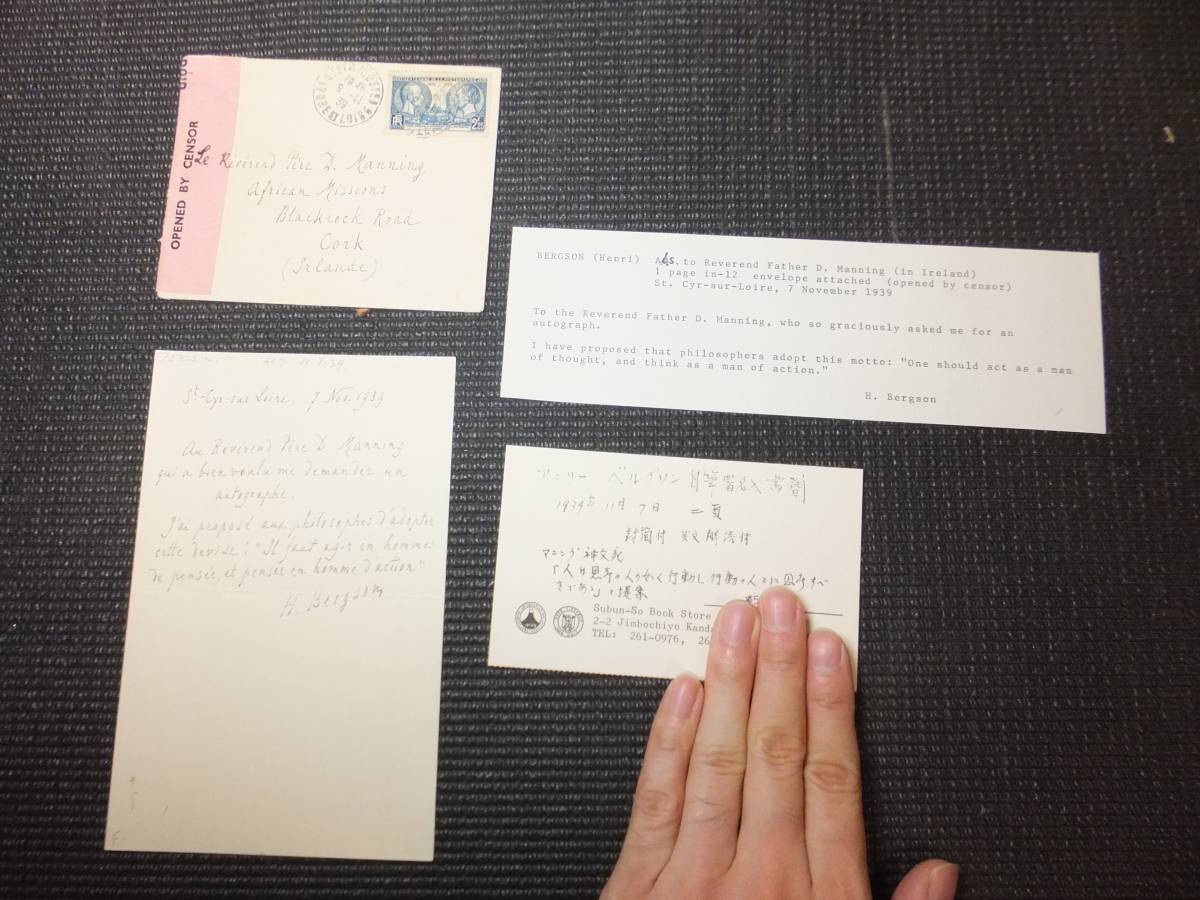 OPENED BY CENSOR
Le Révérend Père D. Manning
African Missions
Blackrock Road
Cork
(Irlande)
BERGSON (Henri) ALS. to Reverend Father D. Manning (in Ireland)
1 page in-12 envelope attached (opened by censor)
St. Cyr-sur-Loire, 7 November 1939
To the Reverend Father D. Manning, who so graciously asked me for an
autograph.
I have proposed that philosophers adopt this motto: "One should act as a man
of thought, and think as a man of action."
H. Bergson
St-Cyr-sur Loire, 7 Nov. 1939
Au Révérend Père D. Manning
qui a bien voulu me demander un
autographe.
J'ai proposé aux philosophes d'adopter
cette devise : "Il faut agir en homme
de pensée, et penser en homme d'action"
H. Bergson
アンリー ベルグソン 自筆署名入書簡
1939年 11月 7日 一頁
封筒付 英文解説付
マニング神父宛
「人は思考の人の如く行動し 行動の人として思考すべ
きである」と提案
Subun-So Book Store
2-2 Jimbochiyo
TEL: 261-0976,